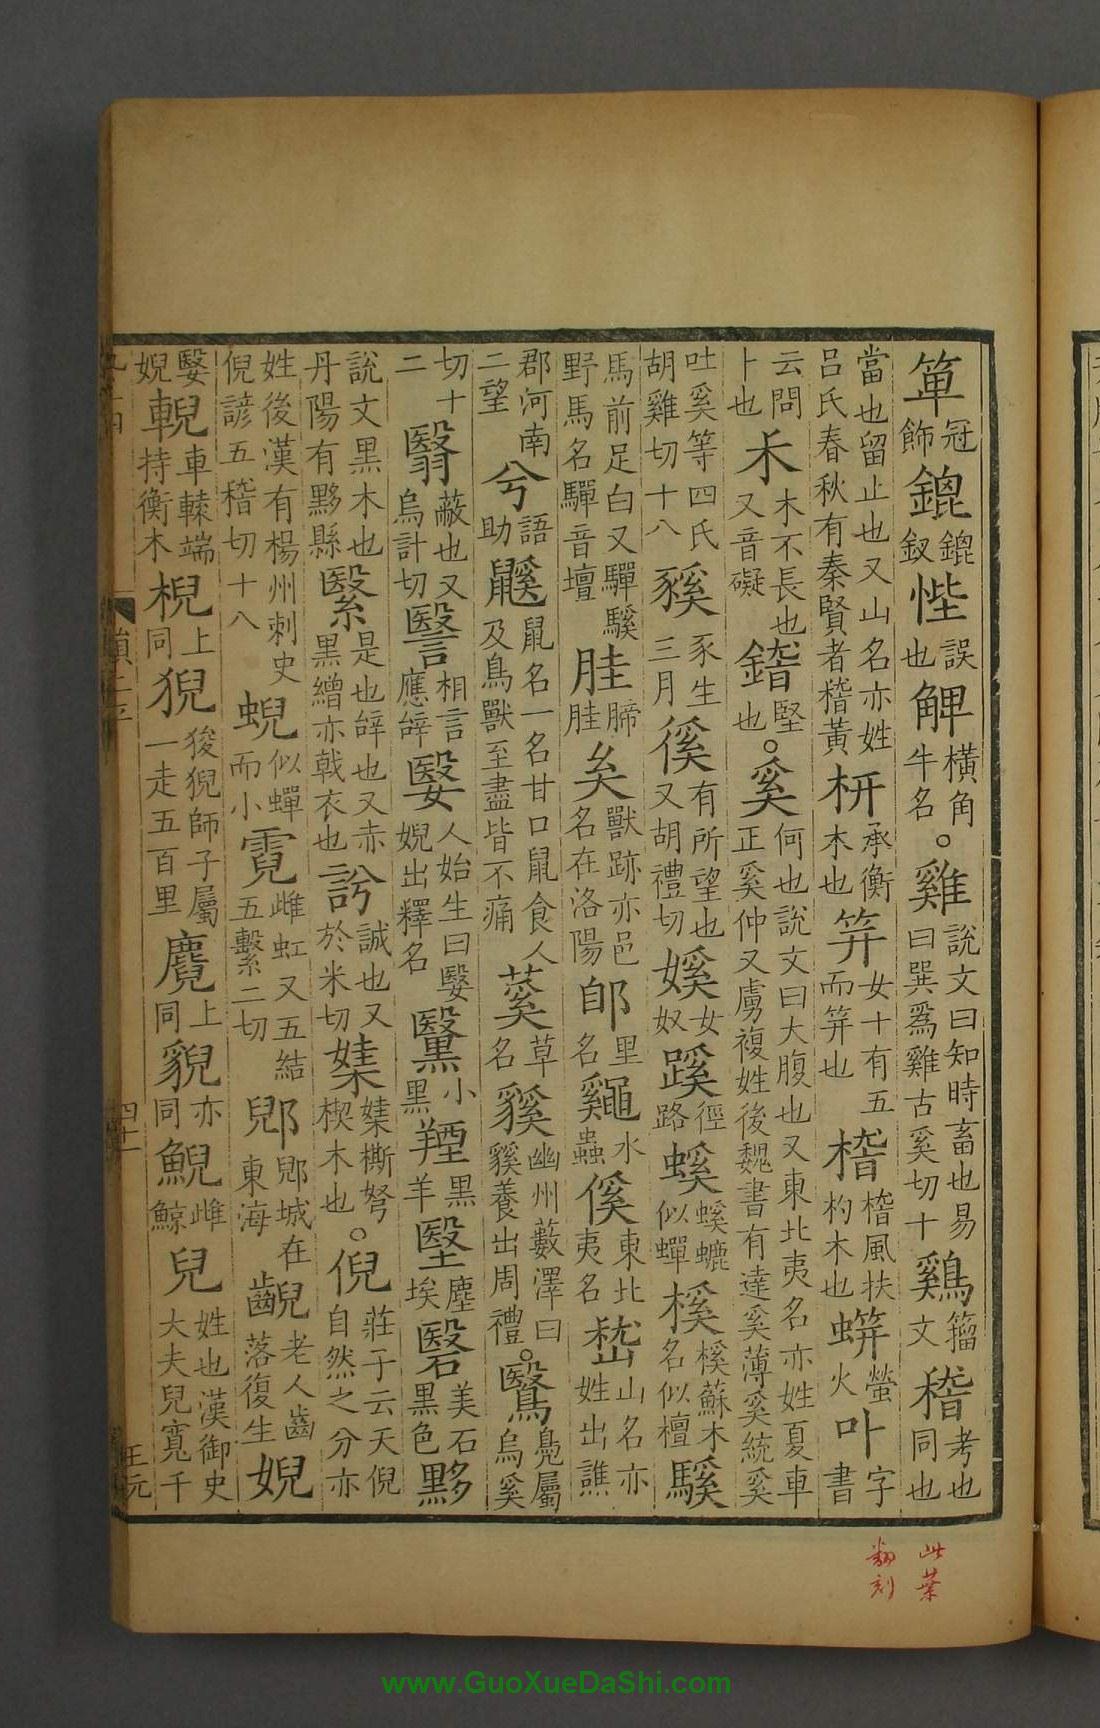 箄冠飾錕錕釵悂誤也觯横角牛名。雞說文曰知時畜也易曰巽爲雞古奚切十鷄籀文稽考也同也
當也留止也又山名亦姓呂氏春秋有秦賢者稽黄枅承衡木也笄女十有五而笄也𣖾𣖾風扶杓木也蛢螢火卟字書
云問卜也禾木不長也又音礙鍇堅也。奚何也說文曰大腹也又東北夷名亦姓夏車正奚仲又虜複姓後魏書有達奚薄奚統奚
吐奚等四氏胡雞切十八豯豕生三月徯有所望也又胡禮切㜎女奴蹊徑路螇螇螰似蟬榽榽蘇木名似檀騱
馬前足白又驒騱野馬名驒音壇䏿䏿腣奊獸跡亦邑名在洛陽郋里名鼷水蟲傒東北夷名嵇山名亦姓出譙
郡河南二望兮語助鼷鼠名一名甘口鼠食人及鳥獸至盡皆不痛蒵草名豯幽州藪澤曰豯養出周禮。鷖鳧屬烏奚
切十二翳蔽也又烏計切瞖相言應辝嫛人始生曰嫛婗出釋名黳小黑羥黑羊堅塵埃硻美石黑色黟
說文黑木也丹陽有黟縣繄是也辝也又赤黑繒亦戟衣也訡誠也又於米切㛂㛂㯕弩楔木也。倪莊子云天倪自然之分亦
姓後漢有楊州刺史倪諺五稽切十八蜺似蟬而小霓雌虹又五結五繫二切郳郳城在東海齯老人齒落復生婗
嫛婗輗車轅端持衡木棿上同猊狻猊師子屬一走五百里麑上同貎亦同鯢雌鯨兒姓也漢御史大夫兒寬千
四十一
王元
此葉
翻刻
www.GuoXueDaShi.com